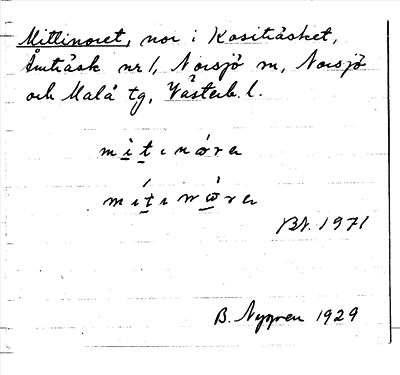 Mittinoret, nor i Kositräsket,
Åmträsk nr 1, Norsjö sn, Norsjö
och Malå tg, Västerb. l.
mitınóra
mítınòra
BN. 1971
B. Nygren 1929